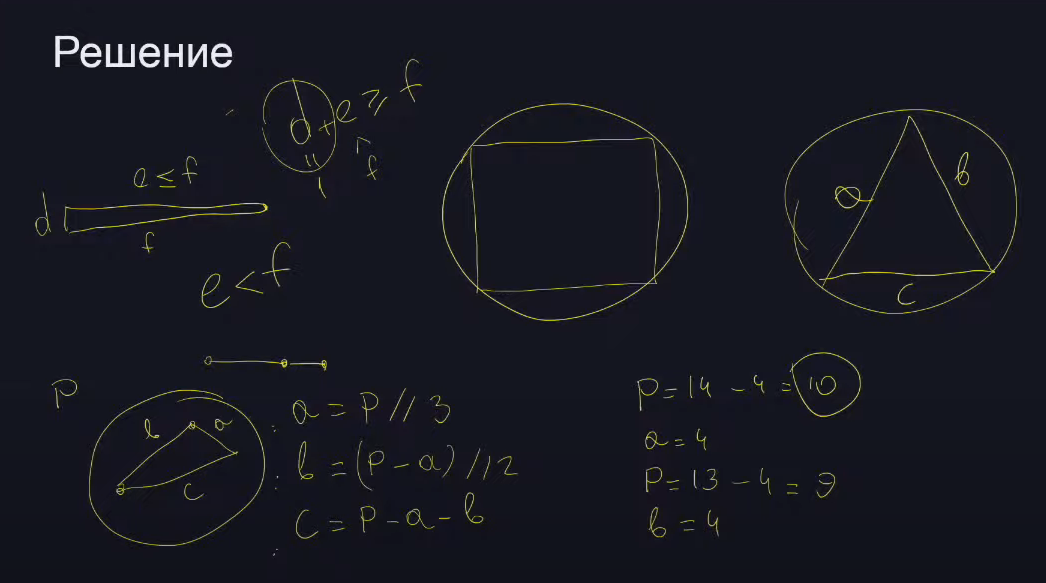 Решение
d + e ≥ f
"
1
f
e ≤ f
d
f
e < f
a
b
c
P
b
a
c
a = P // 3
b = (P - a) // 2
c = P - a - b
P = 14 - 4 = 10
a = 4
P = 13 - 4 = 9
b = 4